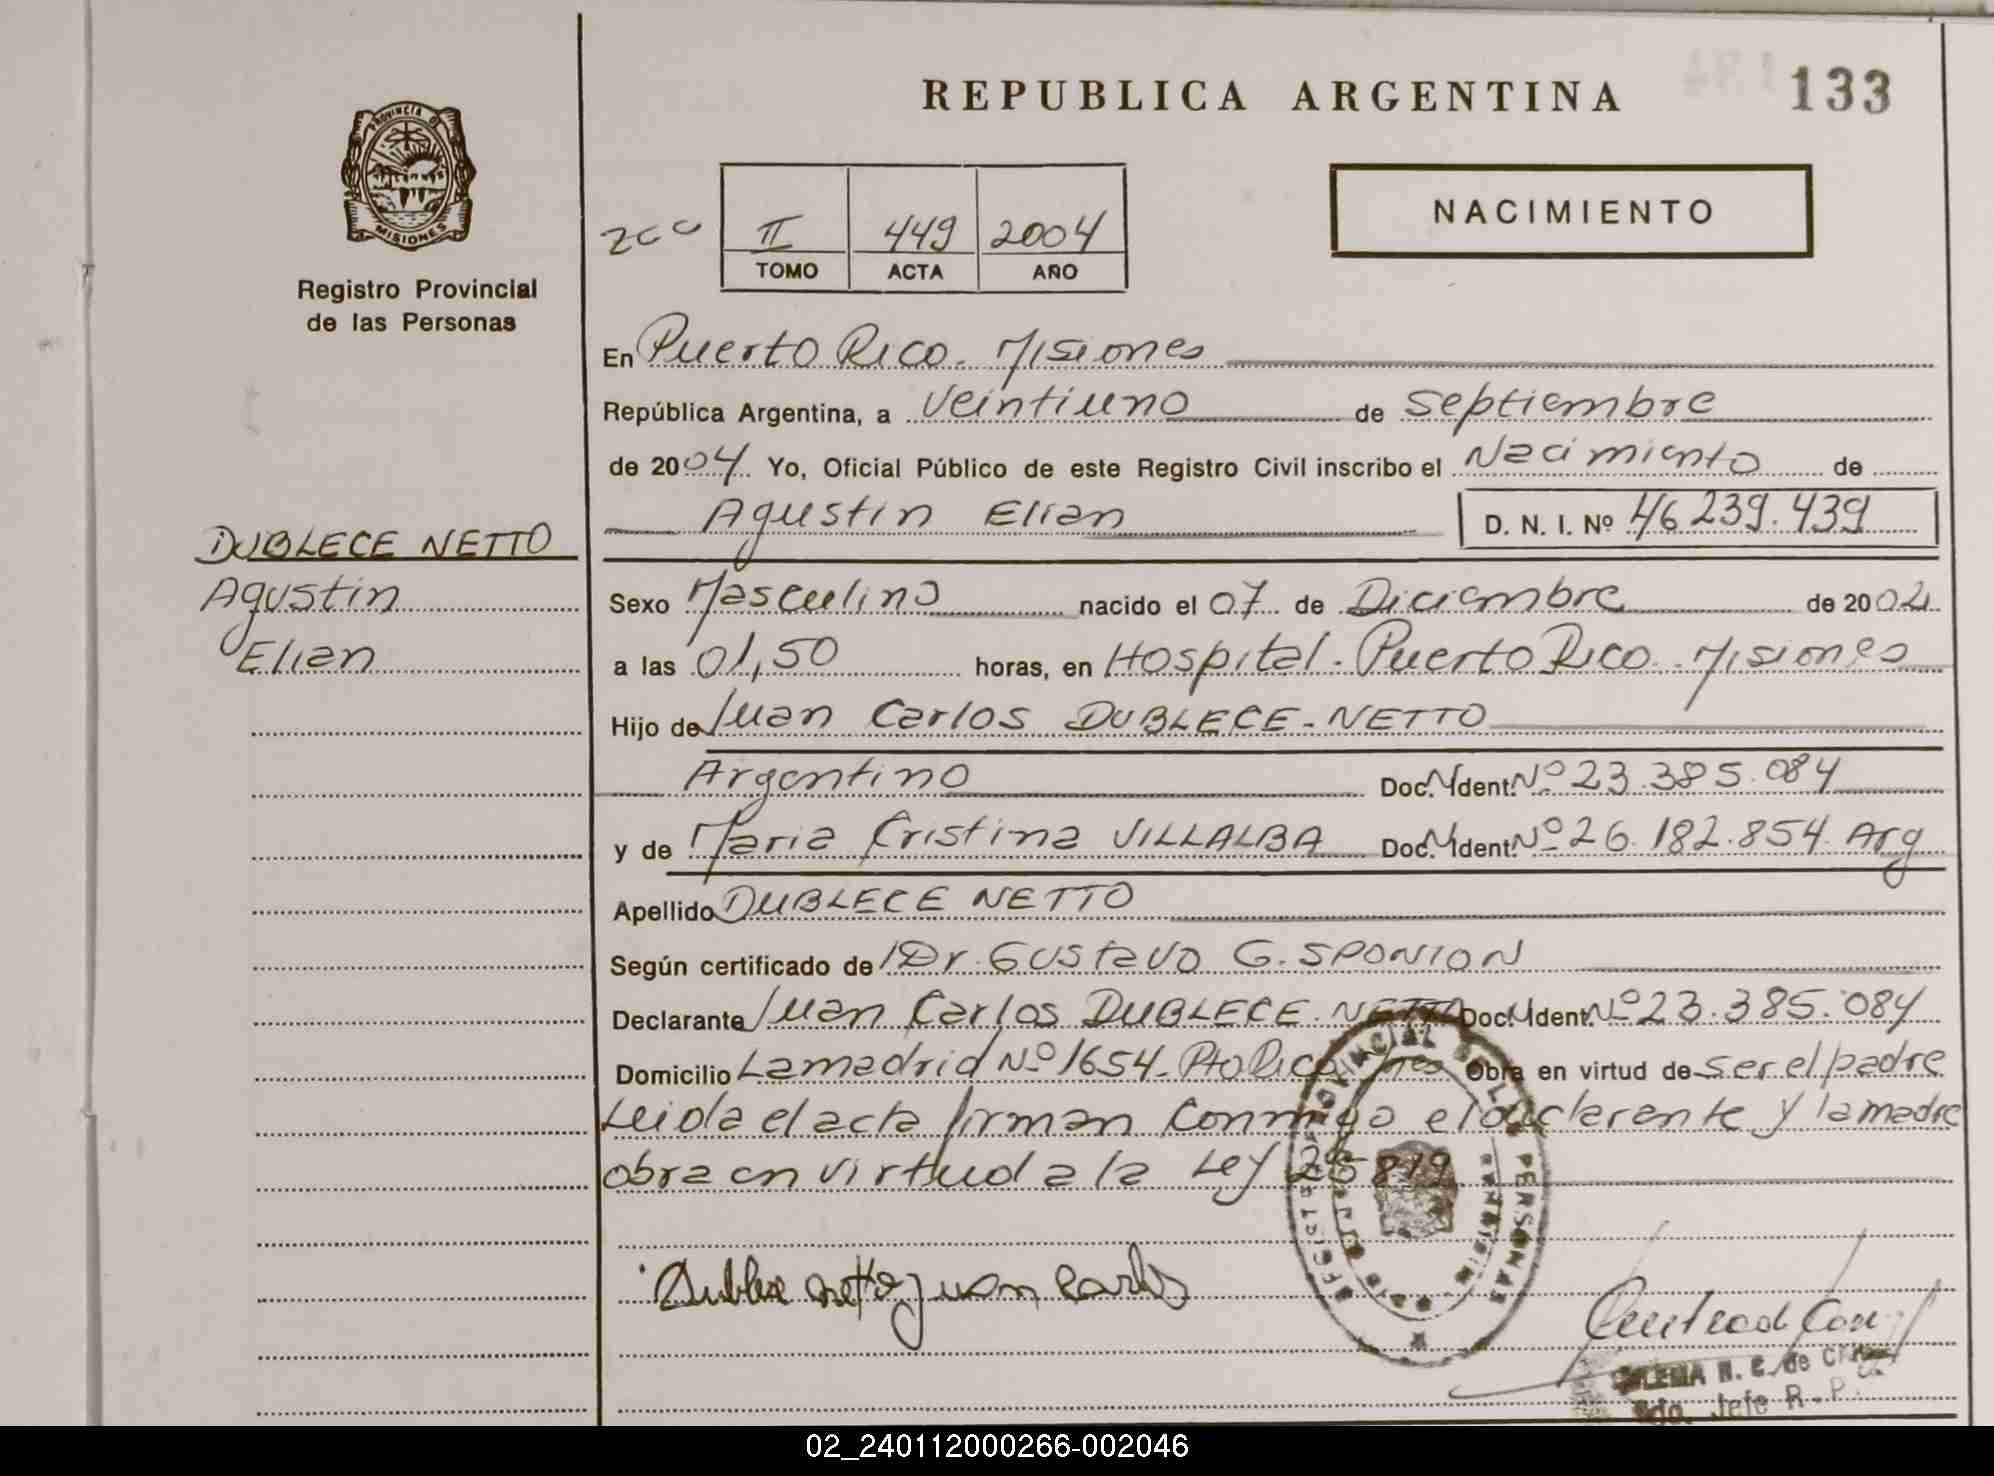 REPUBLICA ARGENTINA
133
PROVINCIA DE
MISIONES
Registro Provincial
de las Personas
II 449 2004
TOMO ACTA AÑO
NACIMIENTO
En Puerto Rico. Misiones
República Argentina, a Veintiuno de Septiembre
de 2004 Yo, Oficial Público de este Registro Civil inscribo el Nacimiento de
Agustin Elian D. N. I. Nº 46 239.439
DUBLECE NETTO
Agustin
Elian
Sexo Masculino nacido el 07 de Diciembre de 20
a las 01,50 horas, en Hospital. Puerto Rico. Misiones
Hijo de Juan Carlos DUBLECE-NETTO
Argentino Doc. N Ident. Nº 23.385.084
y de Maria Cristina VILLALBA Doc. N Ident. Nº 26.182.854. Arg
Apellido DUBLECE NETTO
Según certificado de Dr. Gustavo G. SPONION
Declarante Juan Carlos DUBLECE-NETTO Doc. N Ident. Nº 23.385.084
Domicilio Lamadrid Nº 1654. Pto Rico Mnes Obra en virtud de ser el padre
Leida el acta firman conmigo el declarante y la madre
obra en virtud a la Ley 25819
REGISTRO PROVINCIAL DE LAS PERSONAS
PUERTO RICO
Dublece netto juan carlos
N. E. de
Jefe R. P.
02_240112000266-002046